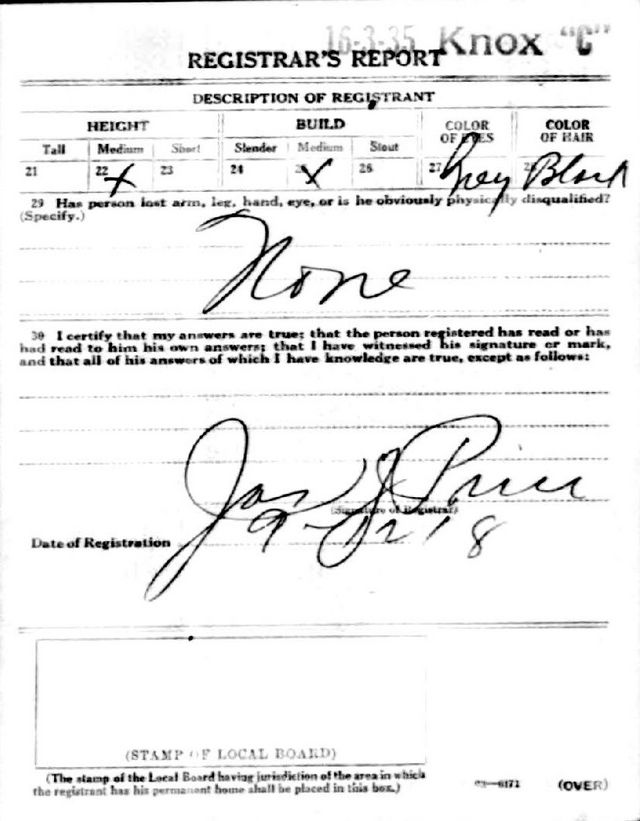 16-3-35 Knox "C"
REGISTRAR'S REPORT
DESCRIPTION OF REGISTRANT
HEIGHT BUILD COLOR OF EYES COLOR OF HAIR
Tall Medium Short Slender Medium Stout
21 22 x 23 24 25 x 26 27 Grey 28 Black
29 Has person lost arm, leg, hand, eye, or is he obviously physically disqualified?
(Specify.)
None
30 I certify that my answers are true; that the person registered has read or has
had read to him his own answers; that I have witnessed his signature or mark,
and that all of his answers of which I have knowledge are true, except as follows:
Jas J Price
(Signature of Registrar)
Date of Registration 9-12-18
(STAMP OF LOCAL BOARD)
(The stamp of the Local Board having jurisdiction of the area in which
the registrant has his permanent home shall be placed in this box.)
03-6171 (OVER)